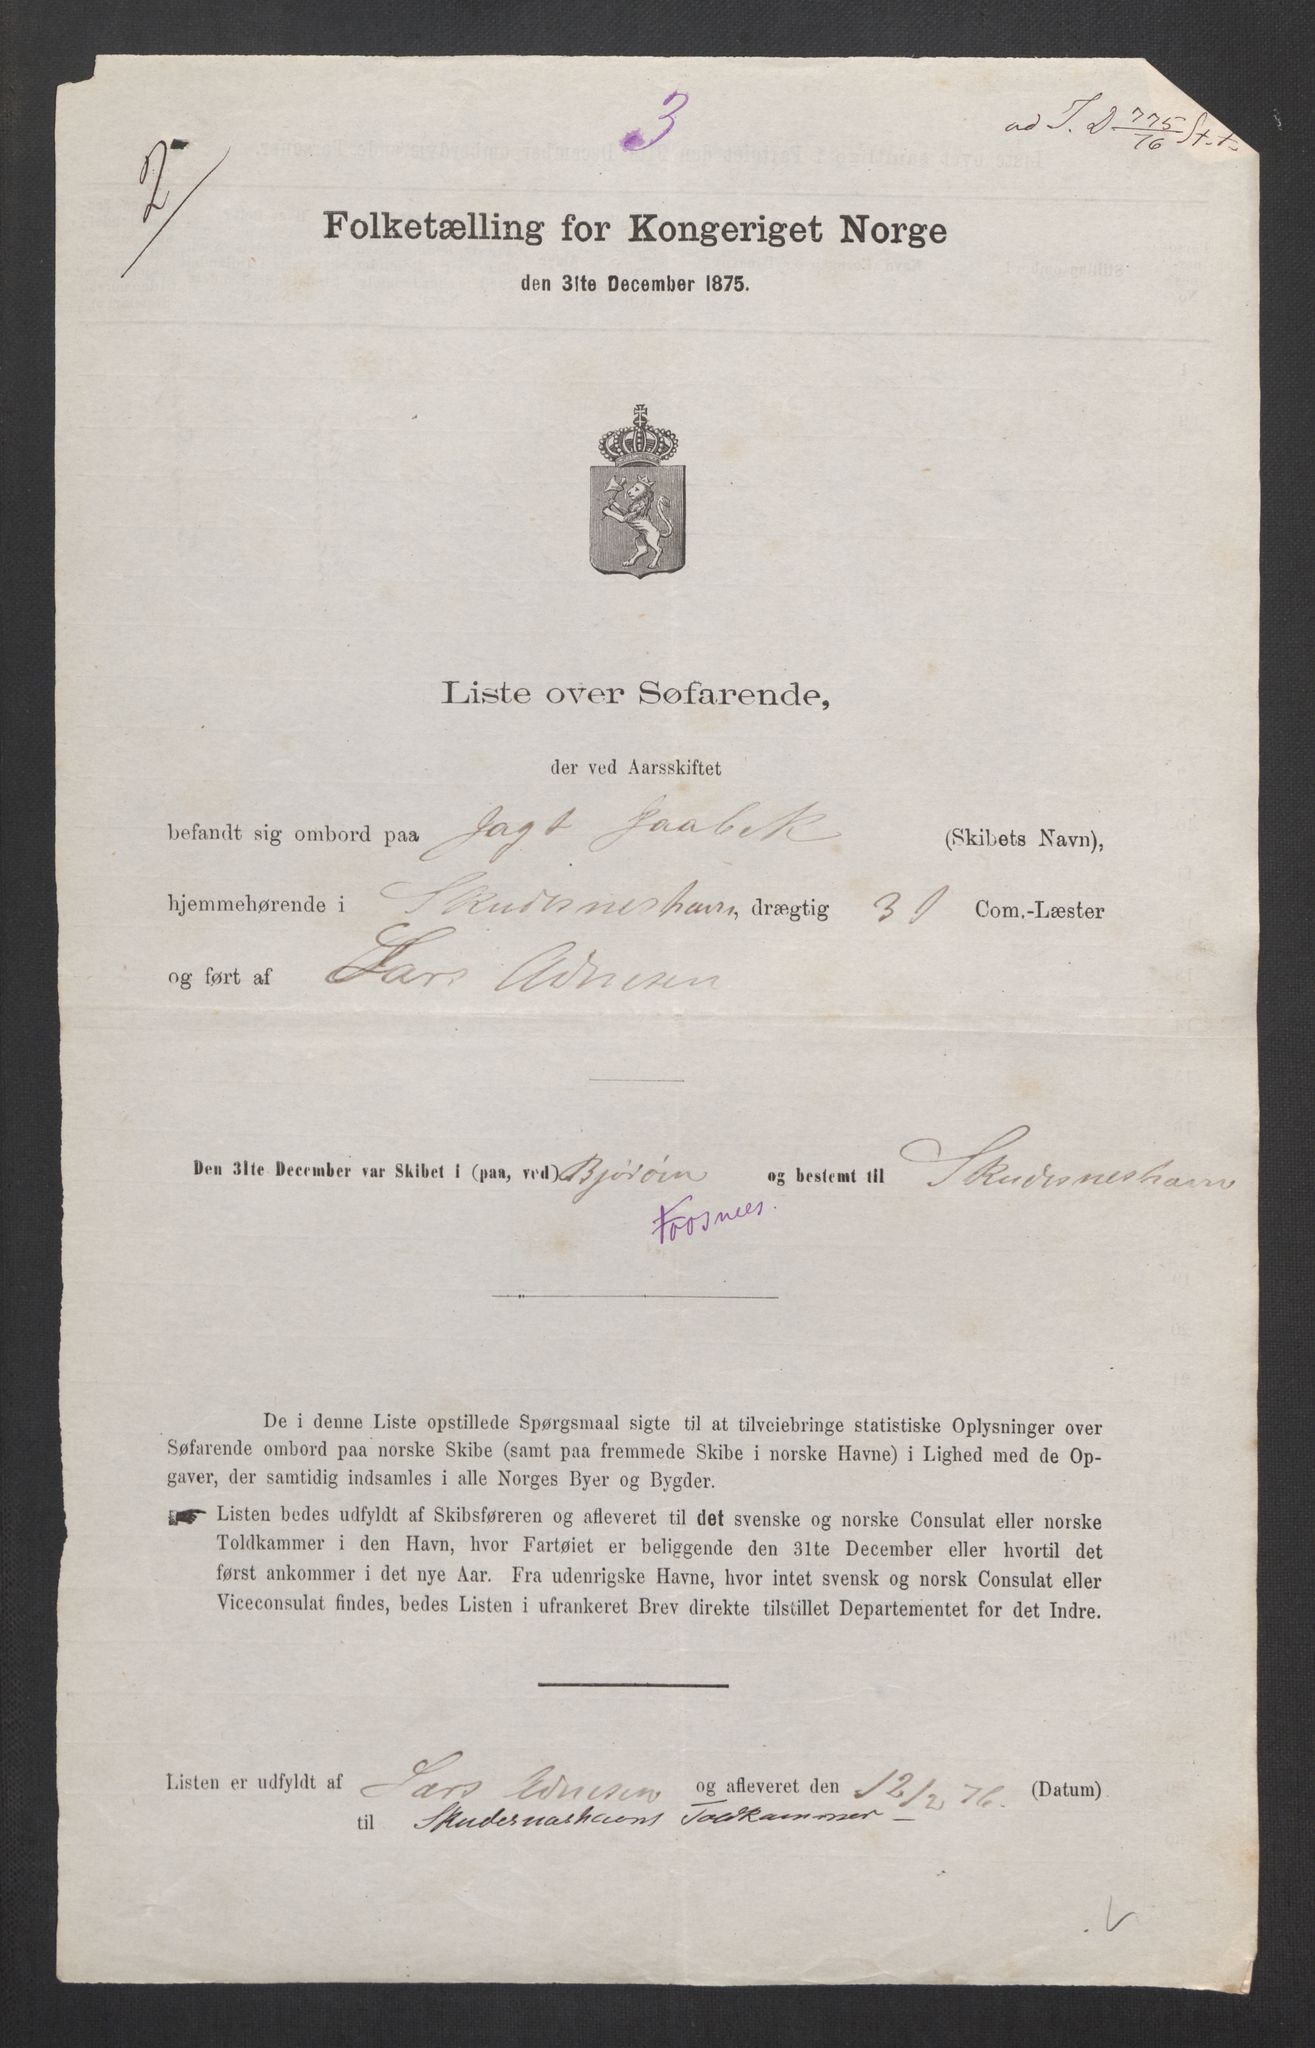 3
ad J. D 775/76 St. t.
2
Folketælling for Kongeriget Norge
den 31te December 1875.
Liste over Søfarende,
der ved Aarsskiftet
befandt sig ombord paa Jagt Jaabek (Skibets Navn),
hjemmehørende i Skudesneshavn, drægtig 31 Com.-Læster
og ført af Lars Adnesen
Den 31te December var Skibet i (paa, ved) Bjørøen og bestemt til Skudesneshavn
Foosnees.
De i denne Liste opstillede Spørgsmaal sigte til at tilveiebringe statistiske Oplysninger over
Søfarende ombord paa norske Skibe (samt paa fremmede Skibe i norske Havne) i Lighed med de Op-
gaver, der samtidig indsamles i alle Norges Byer og Bygder.
☛ Listen bedes udfyldt af Skibsføreren og afleveret til det svenske og norske Consulat eller norske
Toldkammer i den Havn, hvor Fartøiet er beliggende den 31te December eller hvortil det
først ankommer i det nye Aar. Fra udenrigske Havne, hvor intet svensk og norsk Consulat eller
Viceconsulat findes, bedes Listen i ufrankeret Brev direkte tilstillet Departementet for det Indre.
Listen er udfyldt af Lars Adnesen og afleveret den 12/2 76. (Datum)
til Skudesnæshavns Toldkammer